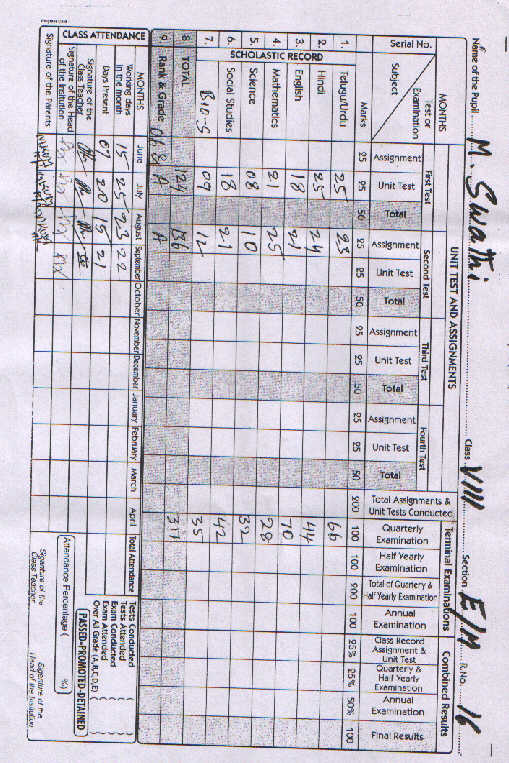 Name of the Pupil M. Swathi Class VIII Section E/M R.No. 16
MONTHS UNIT TEST AND ASSIGNMENTS Terminal Examinations Combined Results
Test or Examination First Test Second Test Third Test Fourth Test
Serial No. Subject Assignment Unit Test Total Assignment Unit Test Total Assignment Unit Test Total Assignment Unit Test Total Total Assignments & Unit Tests Conducted Quarterly Examination Half Yearly Examination Total of Quarterly & Half Yearly Examination Annual Examination Class Record Assignment & Unit Test Quarterly & Half Yearly Examination Annual Examination Final Results
Marks 25 25 50 25 25 50 25 25 50 25 25 50 200 100 100 200 100 25% 25% 50% 100
SCHOLASTIC RECORD
1. Telugu/Urdu 25 23 66
2. Hindi 25 24 44
3. English 18 21 70
4. Mathematics 21 25 28
5. Science 08 10 32
6. Social Studies 18 21 42
7. Bio-S 09 12 35
8. TOTAL 124 136
9. Rank & Grade A A
CLASS ATTENDANCE
MONTHS June July August September October November December January February March April Total Attendance
Working days in the month 15 25 23 22
Days Present 07 20 15 21
Signature of the Class Teacher
Signature of the Head of the Institution
Signature of the Parents
Tests Conducted
Tests Attended
Exam Conducted
Exam Attended
Over All Grade (A,B,C,D,E)
PASSED-PROMOTED-DETAINED
(Attendance Percentage ( %)
Signature of the Class Teacher
Signature of the (Head of the Institution)